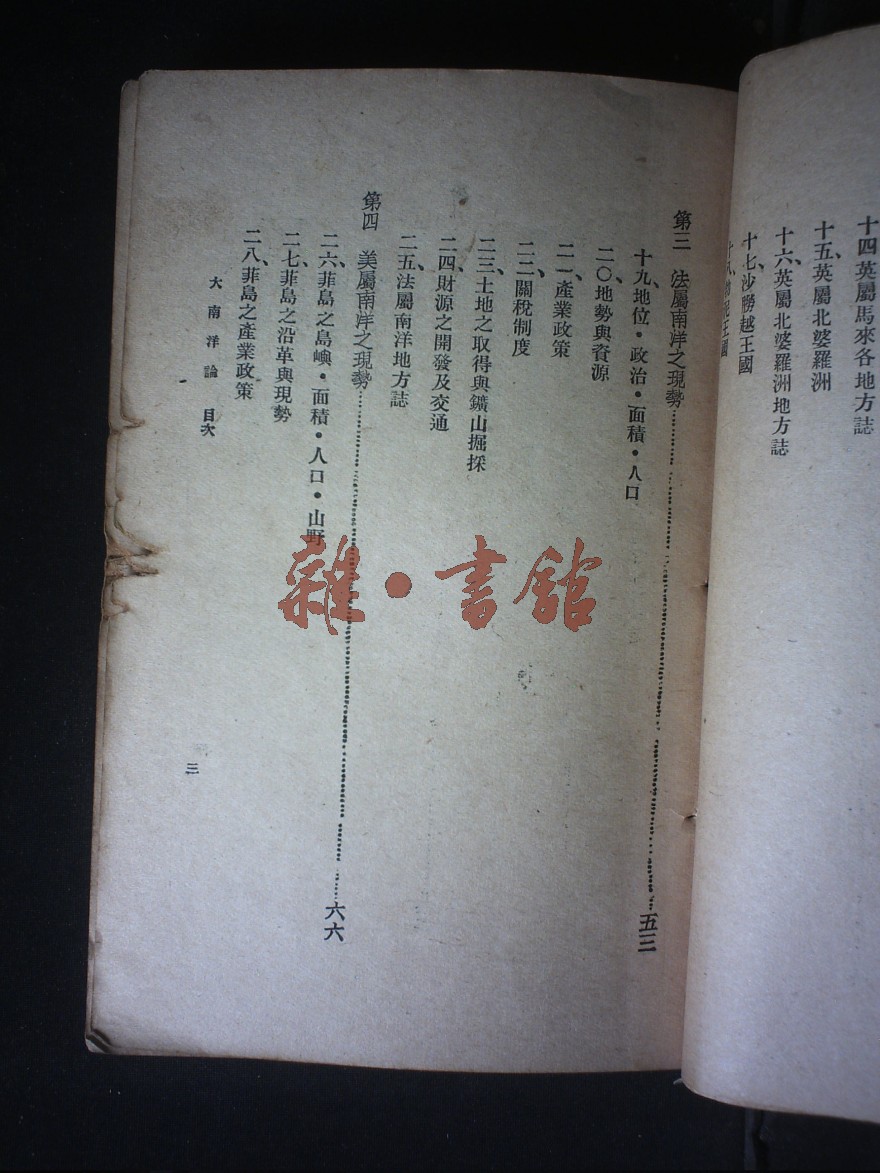 十四、英屬馬來各地方誌
十五、英屬北婆羅洲
十六、英屬北婆羅洲地方誌
十七、沙勝越王國
王國
第三　法屬南洋之現勢……五三
十九、地位・政治・面積・人口
二〇、地勢與資源
二一、產業政策
二二、關稅制度
二三、土地之取得與鑛山掘採
二四、財源之開發及交通
二五、法屬南洋地方誌
第四　美屬南洋之現勢……六六
二六、菲島之島嶼・面積・人口・山野
二七、菲島之沿革與現勢
二八、菲島之產業政策
大南洋論　目次
三
雜・書館